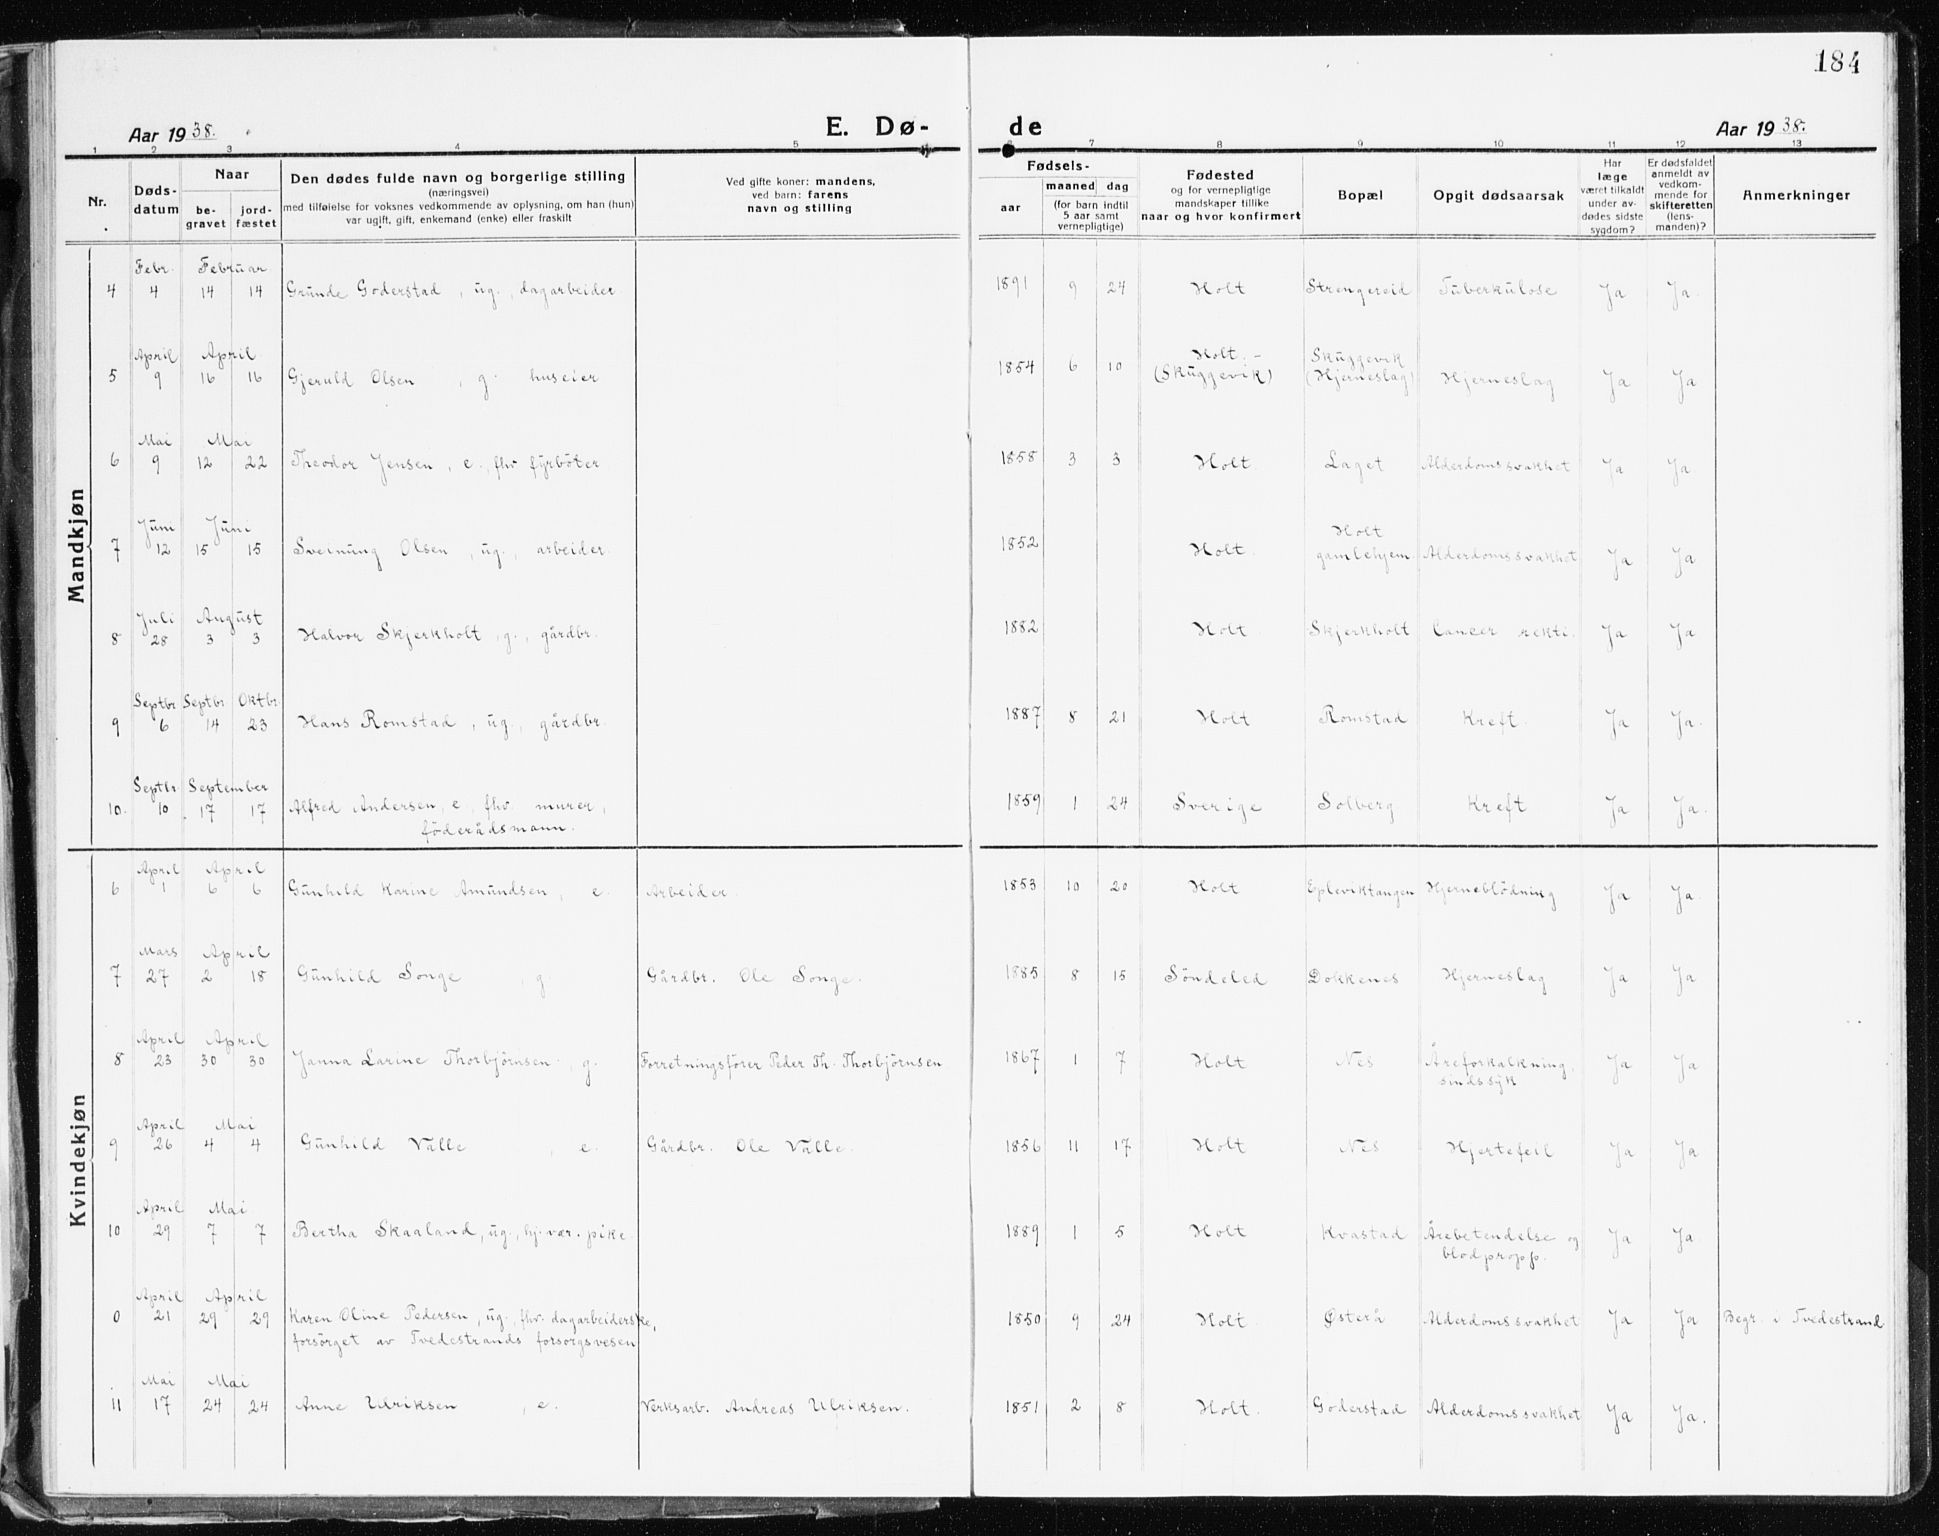 184
Aar 1938.
E. Dø-
de
Aar 1938.
1 2 3 4 5 6 7 8 9 10 11 12 13
Nr.
Døds-
datum
Naar
be-
gravet
jord-
fæstet
Den dødes fulde navn og borgerlige stilling
(næringsvei)
med tilføielse for voksnes vedkommende av oplysning, om han (hun)
var ugift, gift, enkemand (enke) eller fraskilt
Ved gifte koner: mandens,
ved barn: farens
navn og stilling
Fødsels-
aar
maaned dag
(for barn indtil
5 aar samt
vernepligtige)
Fødested
og for vernepligtige
mandskaper tillike
naar og hvor konfirmert
Bopæl
Opgit dødsaarsak
Har
læge
været tilkaldt
under av-
dødes sidste
sygdom?
Er dødsfaldet
anmeldt av
vedkom-
mende for
skifteretten
(lens-
manden)?
Anmerkninger
Mandkjøn
Febr. Februar
4 4 14 14 Grunde Goderstad, ug., dagarbeider. 1891 9 24 Holt Strengereid Tuberkulose Ja Ja.
April April Holt.- Skuggevik
5 9 16 16 Gjeruld Olsen, g. huseier 1854 6 10 (Skuggevik) (Hjerneslag) Hjerneslag Ja Ja
Mai Mai
6 9 12 22 Theodor Jensen, e., fhv fyrböter. 1858 3 3 Holt. Laget Alderdomssvakhet Ja Ja.
Juni Juni Holt
7 12 15 15 Sveinung Olsen, ug., arbeider. 1852 Holt. gamlehjem Alderdomssvakhet Ja Ja
Juli August
8 28 3 3 Halvor Skjerkholt, g., gårdbr. 1882 Holt. Skjerkholt Cancer rekti. Ja Ja
Septbr. Septbr. Oktbr.
9 6 14 23 Hans Romstad, ug., gårdbr. 1887 8 21 Holt Romstad Kreft. Ja Ja.
Septbr. September
10. 10 17 17 Alfred Andersen, e., fhv. murer, 1859 1 24 Sverige Solberg Kreft Ja Ja.
föderådsmann.
Kvindekjøn
April April
6 1 6 6 Gunhild Karine Amundsen, e. Arbeider. 1853 10 20 Holt Epleviktangen Hjerneblödning Ja Ja.
Mars April
7 27 2 18 Gunhild Songe, g Gårdbr. Ole Songe. 1885 8 15 Söndeled Dokkenes Hjerneslag Ja Ja
April April
8 23 30 30 Janna Larine Thorbjörnsen, g. Forretningsförer Peder Th. Thorbjörnsen 1867 1 7 Holt Nes Åreforkalkning, Ja Ja
sindssyk
April Mai
9 26 4 4 Gunhild Valle, e. Gårdbr. Ole Valle. 1856 11 17 Holt Nes Hjertefeil Ja Ja
April Mai.
10 29 7 7 Bertha Skaaland, ug., hj.vær. pike. 1889 1 5 Holt Kvastad Årebetendelse og Ja Ja.
blodpropp.
April April
0 21 29 29 Karen Oline Pedersen, ug., fhv. dagarbeiderske, 1850 9 24 Holt. Østerå Alderdomssvakhet Ja Ja Begr. i Tvedestrand
forsörget av Tvedestrands forsorgsvesen
Mai Mai
11 17 24 24 Anne Ulriksen, e. Verksarb. Andreas Ulriksen. 1851 2 8 Holt. Goderstad Alderdomssvakhet Ja Ja.